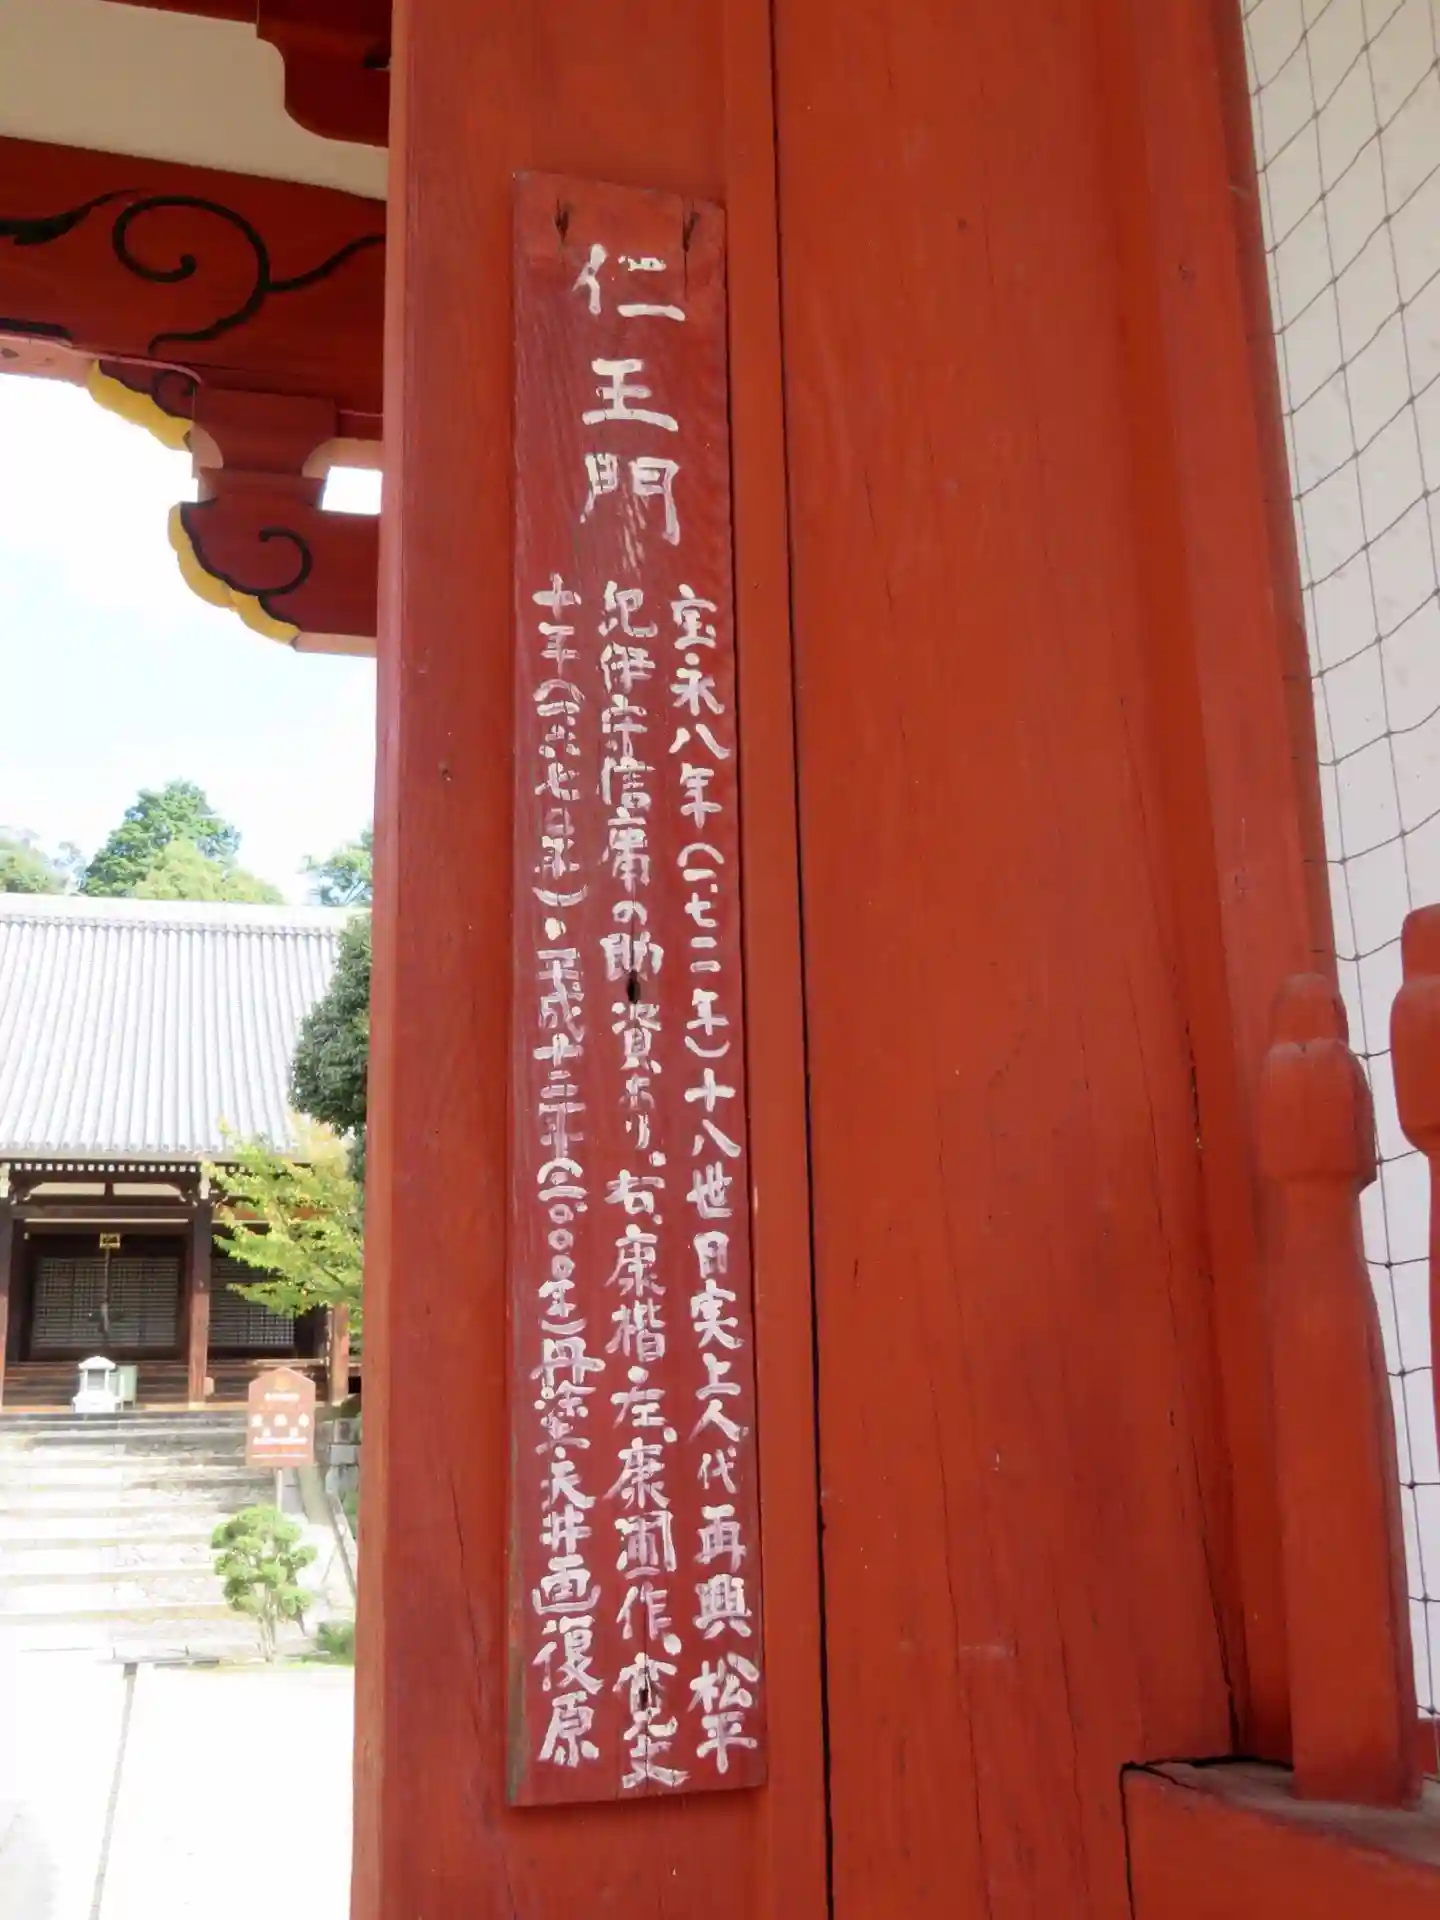 仁王門
宝永八年(一七一一年)十八世目実上人代再興 松平
紀伊守信庸の助資あり、右、康楷・左、康圃作、寛文
十年(一六七〇年)・平成十二年(二〇〇〇年)丹塗・天井画復原